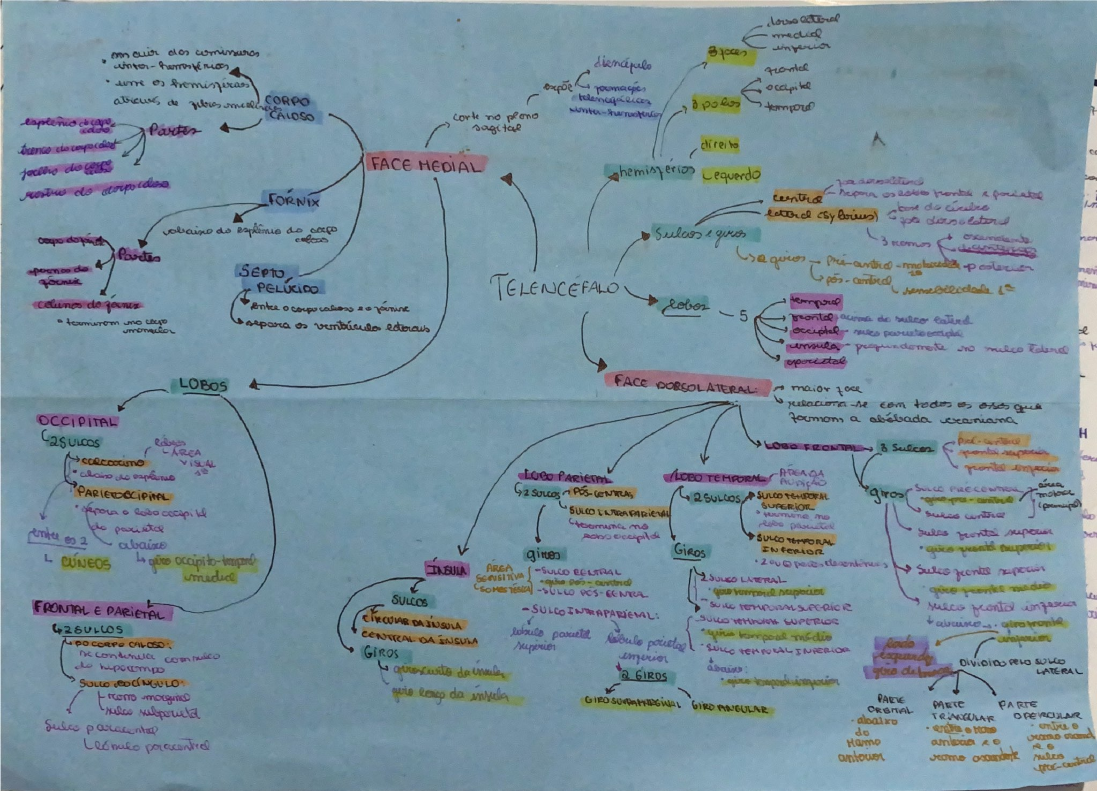 TELENCÉFALO
hemisférios
3 faces
dorsolateral
medial
inferior
3 polos
frontal
occipital
temporal
direito
esquerdo
Sulcos e giros
central
lateral (Sylvius)
separa os lobos frontal e parietal
base do cérebro
3 ramos
ascendente
posterior
pré-central - motricidade
pós-central
sensibilidade 1ª
lobos - 5
temporal
frontal acima do sulco lateral
occipital - sulco parieto occipital
insula - profundamente no sulco lateral
parietal
FACE MEDIAL
corte no plano
sagital
expõe
diencéfalo
formações
telencefálicas
inter-hemisféricas
CORPO
CALOSO
inter-hemisféricas
• une os hemisférios
através de fibras
Partes
esplênio do corpo
caloso
tronco do corpo caloso
joelho do corpo
caloso
rostro do corpo caloso
FÓRNIX
abaixo do esplênio do corpo
caloso
Partes
corpo do fórnix
pernas do
fórnix
colunas do fórnix
• terminam no corpo
mamilar
SÉPTO
PELÚCIDO
entre o corpo caloso e o fórnix
separa os ventrículos laterais
LOBOS
OCCIPITAL
2 SULCOS
calcarino
lábios
ÁREA
VISUAL
1ª
• abaixo do esplênio
PARIETOCCIPITAL
• separa o lobo occipital
do parietal
entre os 2
CÚNEOS
abaixo
giro occipito-temporal
medial
FRONTAL E PARIETAL
2 SULCOS
DO CORPO CALOSO:
se continua com sulco
do hipocampo
SULCO DO CÍNGULO
ramo marginal
sulco subparietal
Sulco paracentral
Lóbulo paracentral
FACE DORSOLATERAL:
maior face
relaciona-se com todos os ossos que
formam a abóbada craniana
ÍNSULA
SULCOS
CÍRCULAR DA ÍNSULA
CENTRAL DA ÍNSULA
GIROS
giros curto da ínsula
giro longo da ínsula
LOBO PARIETAL
2 SULCOS
PÓS-CENTRAL
SULCO INTRAPARIETAL
termina no
giros
ÁREA
SENSITIVA
- SULCO CENTRAL
• giro pós-central
- SULCO PÓS-CENTRAL
- SULCO INTRAPARIETAL:
lóbulo parietal
superior
lóbulo parietal
inferior
2 GIROS
GIRO SUPRAMARGINAL
GIRO ANGULAR
LOBO TEMPORAL
ÁREA DA
AUDIÇÃO
2 SULCOS
SULCO TEMPORAL
SUPERIOR
• termina no
lobo parietal
SULCO TEMPORAL
INFERIOR
• 2 ou 3 partes descontínuas
GIROS
SULCO LATERAL
• giro temporal superior
- SULCO TEMPORAL SUPERIOR
SULCO TEMPORAL SUPERIOR
• giro temporal médio
• SULCO TEMPORAL INFERIOR
abaixo:
• giro temporal inferior
LOBO FRONTAL
3 Sulcos
pré-central
frontal superior
frontal inferior
giros
SULCO PRÉ CENTRAL
• giro pré-central
sulco central
área
motora
(principal)
sulco frontal superior
• giro frontal superior
Sulco frontal superior
• giro frontal médio
sulco frontal inferior
giro frontal
inferior
DIVIDIDO PELO SULCO
LATERAL
PARTE
ORBITAL
• abaixo
do
Ramo
anterior
PARTE
TRIANGULAR
• entre o ramo
anterior e o
ramo ascendente
PARTE
OPERCULAR
• entre o
e o
sulco
pré-central